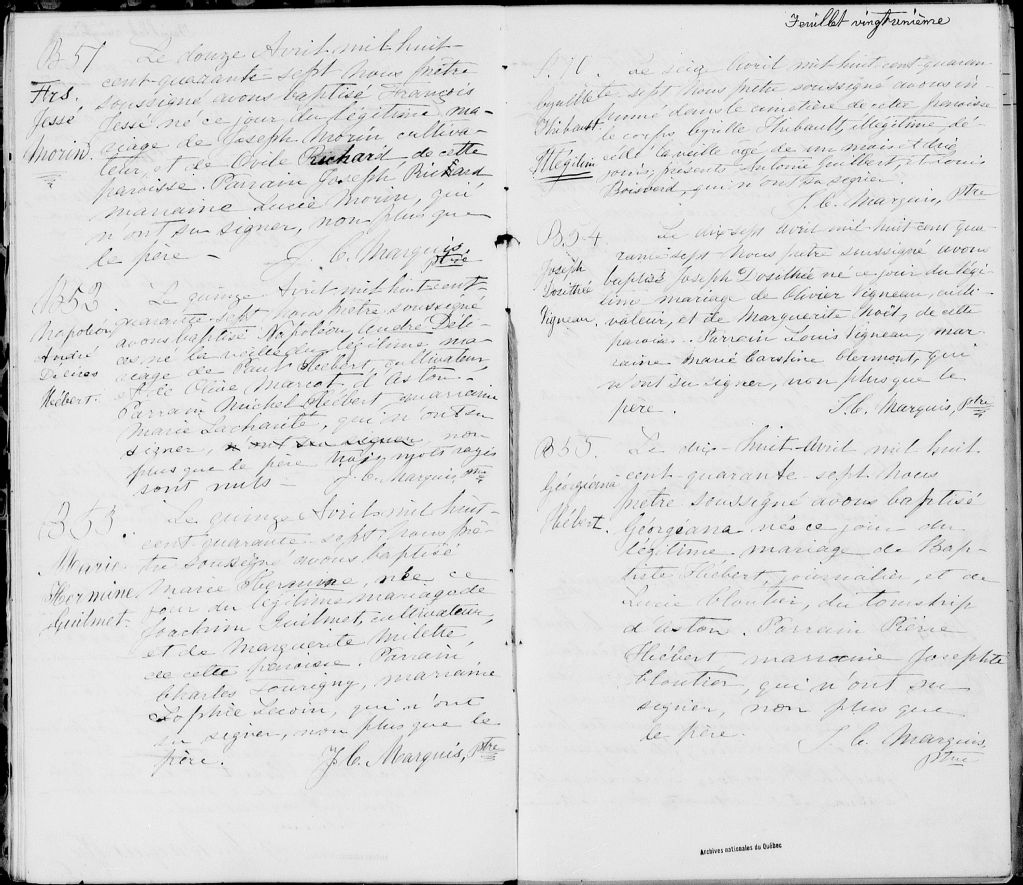 B51
Frs.
Jessé
Morin
Le douze Avril mil huit-
cent-quarante sept Nous prêtre
soussigné avons baptisé François
Jessé né ce jour, du légitime ma-
riage de Joseph Morin cultiva-
teur, et de Olive Richard, de cette
paroisse. Parrain Joseph Richard
marraine Lucie Morin, qui
n'ont su signer, non plus que
le père -
J. C. Marquis
ptre
B52
Napoléon
André
Hébert.
Le quinze Avril mil huit cent-
quarante-sept Nous prêtre soussigné
avons baptisé Napoléon, André Déli-
ces, né la veille du légitime ma-
riage de Paul Hébert, cultivateur,
et de Olive Marcot, d'Aston.
Parrain Michel Hébert marraine
Marie Lachante, qui n'ont su
signer, n'ont su signer non
plus que le père mots rayés
sont nuls -
J. C. Marquis, ptre
B53.
Marie
Hermine
Guilmet.
Le quinze Avril mil huit-
cent-quarante-sept Nous prê-
tre soussigné avons baptisé
Marie Hermine, née ce
jour du légitime mariage de
Joachim Guilmet, cultivateur,
et de Marguerite Milette
de cette paroisse. Parrain
Charles Tourigny, marraine
Sophie Lecoin, qui n'ont
su signer, non plus que le
père.
J. C. Marquis, ptre
Feuillet vingtunième
Cyrille
Thibault
Illégitim
Le seize Avril mil huit cent quaran-
te sept Nous prêtre soussigné avons in-
humé dans le cimetière de cette paroisse
le corps Cyrille Thibault, illégitime dé-
cédé la veille agé de un mois et dix
jours, présents Antoine Guilbert, et Louis
Boisverd, qui n'ont su signer.
J. C. Marquis, ptre
B54
Joseph
Dosithée
Vigneau.
Le dix sept avril mil huit cent qua-
rante sept Nous prêtre soussigné avons
baptisé Joseph Dosithée né ce jour du légi-
time mariage de Olivier Vigneau, culti-
vateur, et de Marguerite Noël, de cette
paroisse. Parrain Louis Vigneau, mar-
raine Marie Caroline Clermont, qui
n'ont su signer, non plus que le
père.
J. C. Marquis, ptre
B55.
Georgeana
Hébert.
Le dix-huit Avril mil huit
cent-quarante-sept Nous
prêtre soussigné avons baptisé
Georgeana née ce jour du
légitime mariage de Bap-
tiste Hébert, journalier, et de
Lucie Cloutier, du township
d'Aston. Parrain Pierre
Hébert, marraine Josephte
Cloutier, qui n'ont su
signer, non plus que
le père.
J. C. Marquis,
ptre
Archives nationales du Québec